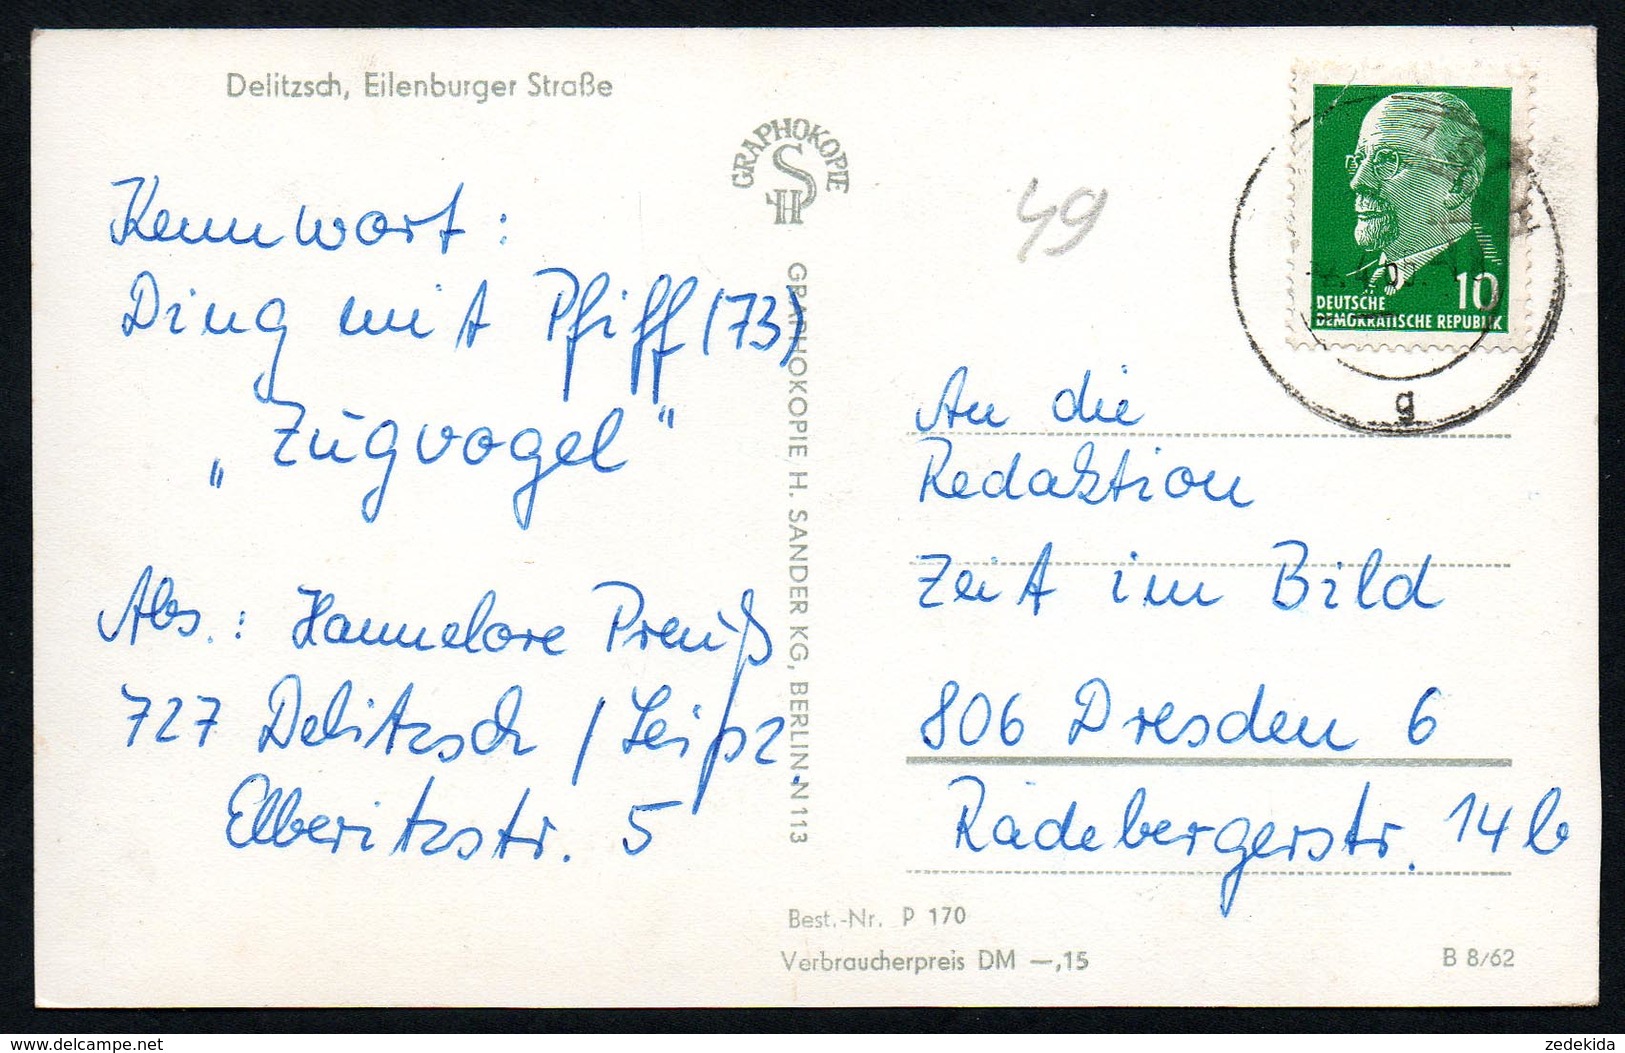 Delitzsch, Eilenburger Straße
GRAPHOKOPIE
HS
49
Kennwort:
Ding mit Pfiff (73)
„Zugvogel"
Abs.: Hannelore Preuß
727 Delitzsch / Leipz.
Elberitzstr. 5
GRAPHOKOPIE H. SANDER KG, BERLIN N 113
10
DEUTSCHE
DEMOKRATISCHE REPUBLIK
g
An die
Redaktion
Zeit im Bild
806 Dresden 6
Radebergerstr. 14b
Best.-Nr. P 170
Verbraucherpreis DM —,15
B 8/62
delcampe.net
zedekida